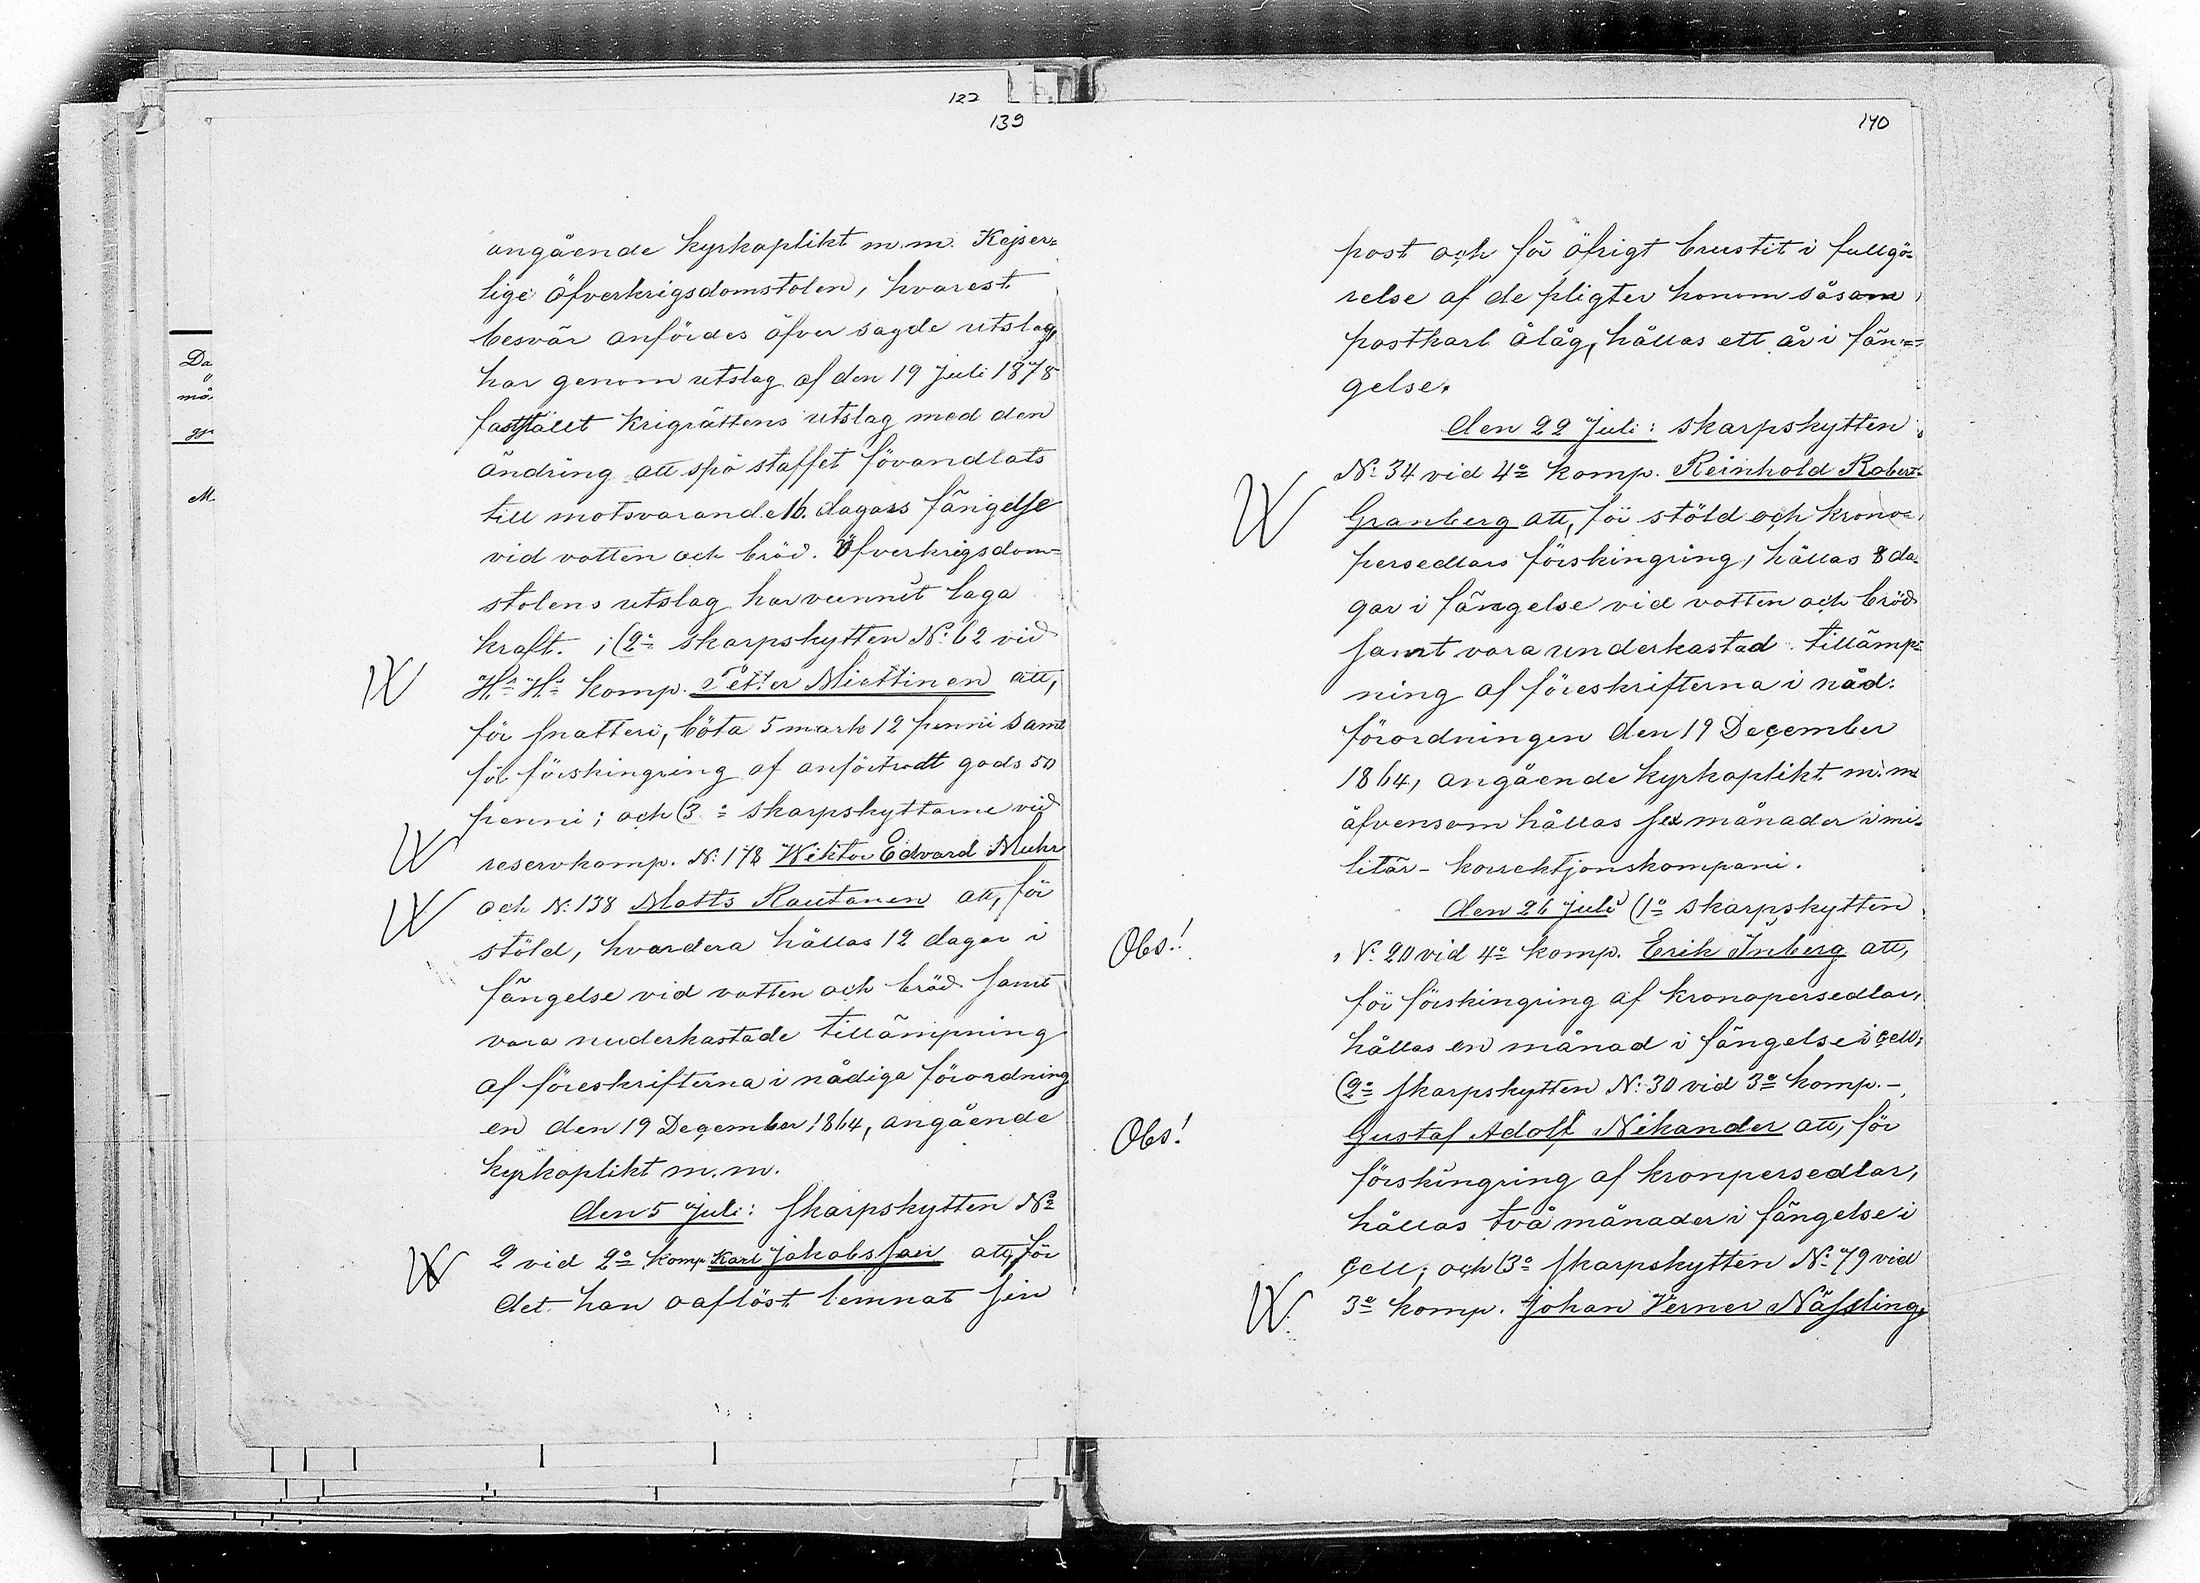 122
139
Da
må.
M.
angående kyrkoplikt m.m. Kejser=
lige Öfverkrigsdomstolen, hvarest
besvär anfördes öfver sagde utslag,
har genom utslag af den 19 Juli 1878
fastställt Krigrättens utslag med den
ändring att spö staffet förvandlats
till motsvarande 16. dagars fängelse
vid vatten och bröd. Öfverkrigsdom=
stolens utslag har vunnit laga
kraft. ; (2º skarpskytten Nº 62 vid
H.s H.s komp. Petter Miettinen att,
för snatteri, böta 5 mark 12 penni samt
för förskingring af anförtrodt gods 50
penni; och (3.º skarpskyttarne vid
reservkomp. Nº 178 Wiktor Edvard Muhr
och Nº 138 Matts Rautanen att, för
stöld, hvardera hållas 12 dagar i
fängelse vid vatten och bröd samt
vara underkastade tillämpning
af föreskrifterna i nådiga förordning
en den 19 December 1864, angående
kyrkoplikt m.m.
den 5 Juli: skarpskytten Nº
2 vid 2º komp Karl Jakobsson att, för
det han oaflöst lemnat sin
140
post och för öfrigt brustit i fullgö=
relse af de pligter honom såsom
postkarl ålåg, hållas ett år i fän=
gelse.
den 22 Juli: skarpskytten
Nº 34 vid 4º komp. Reinhold Robert
Granberg att, för stöld och krono=
persedlars förskingring, hållas 8 da=
gar i fängelse vid vatten och bröd
samt vara underkastad tillämp=
ning af föreskrifterna i nåd:
förordningen den 19 December
1864, angående kyrkoplikt m.m
äfvensom hållas sex månader i mi=
litär- korrektjonskompani.
den 26 Juli (1º skarpskytten
Obs!
Nº 20 vid 4º komp. Erik Inberg att,
för förskingring af kronopersedlar,
hållas en månad i fängelse i cell;
(2º skarpskytten Nº 30 vid 3º komp.-
Obs!
Gustaf Adolf Nikander att, för
förskingring af kronpersedlar,
hållas två månader i fängelse i
cell; och (3º skarpskytten Nº 79 vid
3º komp. Johan Verner Nässling,